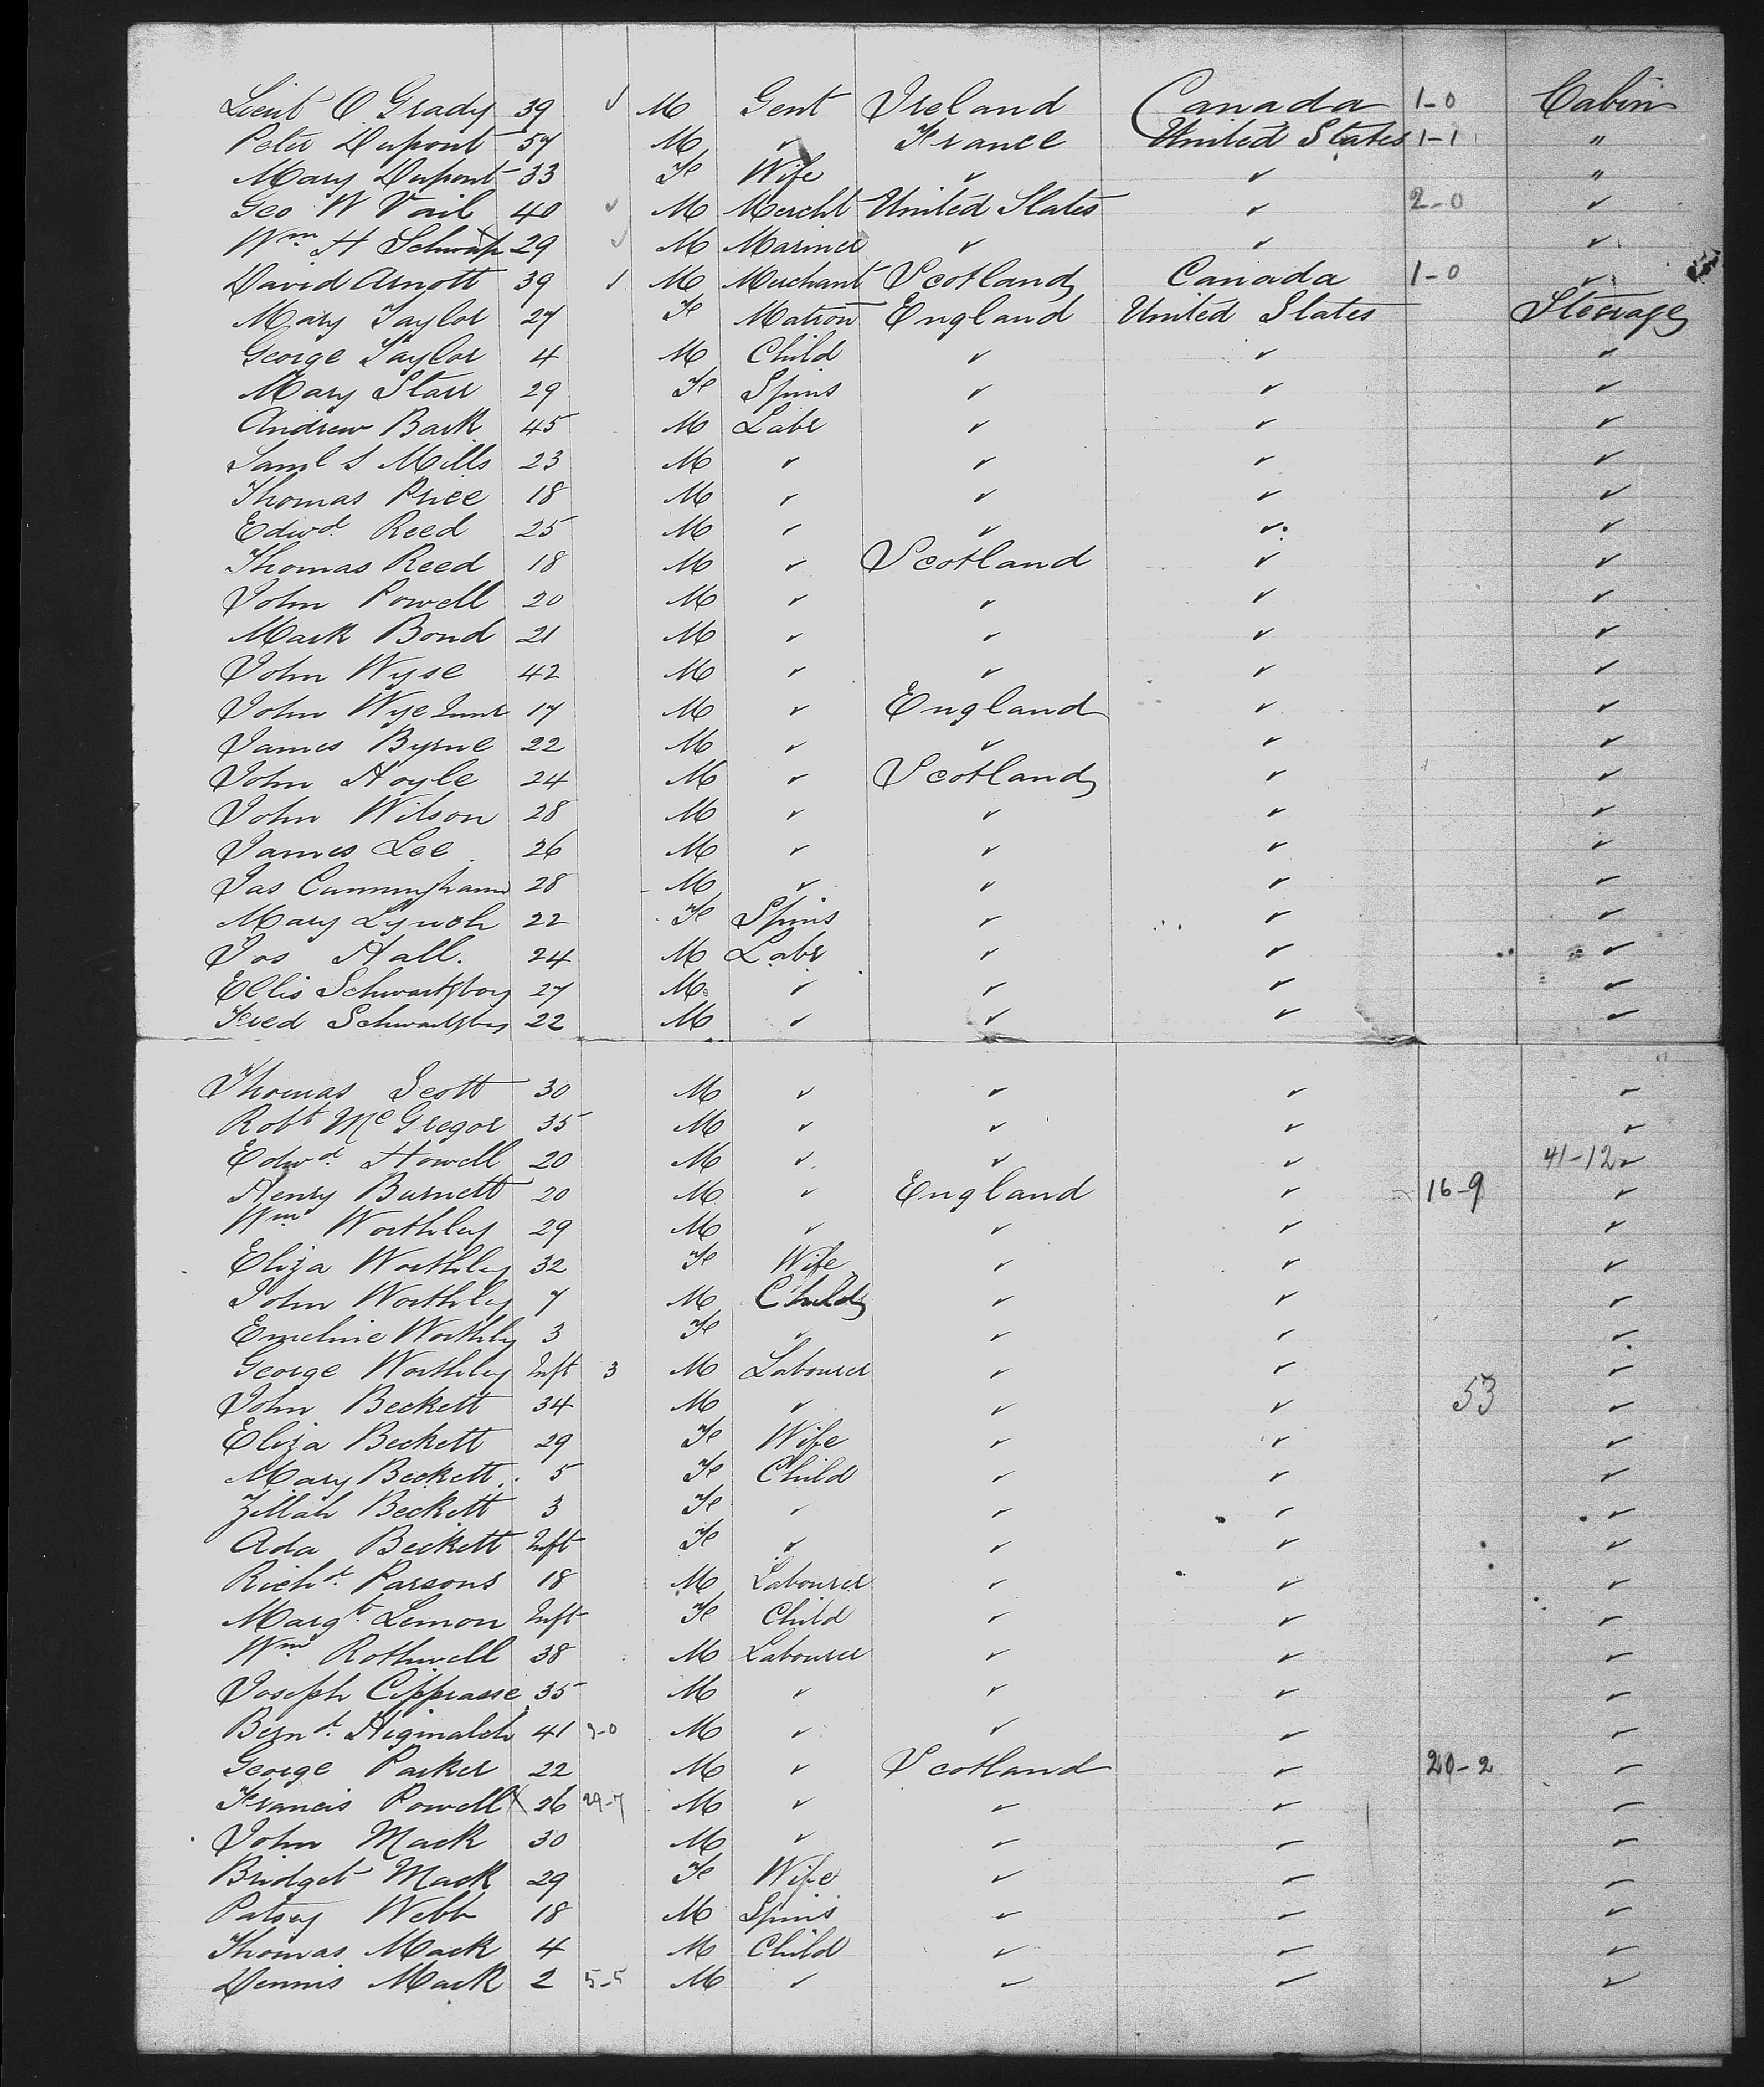 Lieut O Grady 39 ✓ M Gent Ireland Canada 1-0 Cabin
Peter Dupont 57 M ✓ France United States 1-1 "
Mary Dupont 33 Fe Wife ✓ ✓ "
Geo W Vail 40 ✓ M Mercht United States ✓ 2-0 ✓
Wm H 29 ✓ M Mariner ✓ ✓ ✓
David Arnott 39 ✓ M Merchant Scotland Canada 1-0 ✓
Mary Taylor 27 Fe Matron England United States Steerage
George Taylor 4 M Child ✓ ✓ ✓
Mary Starr 29 Fe Spins ✓ ✓ ✓
Andrew Bark 45 M Labr ✓ ✓ ✓
Saml S Mills 23 M ✓ ✓ ✓ ✓
Thomas Price 18 M ✓ ✓ ✓ ✓
Edwd Reed 25 M ✓ ✓ ✓ ✓
Thomas Reed 18 M ✓ Scotland ✓ ✓
John Powell 20 M ✓ ✓ ✓ ✓
Mark Bond 21 M ✓ ✓ ✓ ✓
John Wyse 42 M ✓ ✓ ✓ ✓
John Wyse Junr 17 M ✓ England ✓ ✓
James Byrne 22 M ✓ ✓ ✓ ✓
John Hoyle 24 M ✓ Scotland ✓ ✓
John Wilson 28 M ✓ ✓ ✓ ✓
James Lee 26 M ✓ ✓ ✓ ✓
Jas Cunningham 28 M ✓ ✓ ✓ ✓
Mary Lynch 22 Fe Spins ✓ ✓ ✓
Jos Hall. 24 M Labr ✓ ✓ ✓
Ellis 27 M ✓ ✓ ✓ ✓
Fred 22 M ✓ ✓ ✓ ✓
Thomas Scott 30 M ✓ ✓ ✓ ✓
Robt McGregor 35 M ✓ ✓ ✓ ✓
Edwd Howell 20 M ✓ ✓ ✓ 41-12 ✓
Henry Burnett 20 M ✓ England ✓ 16-9 ✓
Wm Worthley 29 M ✓ ✓ ✓ ✓
Eliza Worthley 32 Fe Wife ✓ ✓ ✓
John Worthley 7 M Child ✓ ✓ ✓
Emeline Worthley 3 Fe ✓ ✓ ✓ ✓
George Worthley Inft 3 M Labourer ✓ ✓ ✓
John Beckett 34 M ✓ ✓ ✓ 53 ✓
Eliza Beckett 29 Fe Wife ✓ ✓ ✓
Mary Beckett 5 Fe Child ✓ ✓ ✓
Zillah Beckett 3 Fe ✓ ✓ ✓ ✓
Ada Beckett Inft Fe ✓ ✓ ✓ ✓
Richd Parsons 18 M Labourer ✓ ✓ ✓
Margt Lemon Inft Fe Child ✓ ✓ ✓
Wm Rothwell 38 M Labourer ✓ ✓ ✓
Joseph 35 M ✓ ✓ ✓ ✓
41 M ✓ ✓ ✓ ✓
George Parker 22 M ✓ Scotland ✓ 20-2 ✓
Francis Powell X 26 29-7 M ✓ ✓ ✓ ✓
John Mack 30 M ✓ ✓ ✓ ✓
Bridget Mack 29 Fe Wife ✓ ✓ ✓
Patsey Webb 18 M Spins ✓ ✓ ✓
Thomas Mack 4 M Child ✓ ✓ ✓
Dennis Mack 2 5-5 M ✓ ✓ ✓ ✓